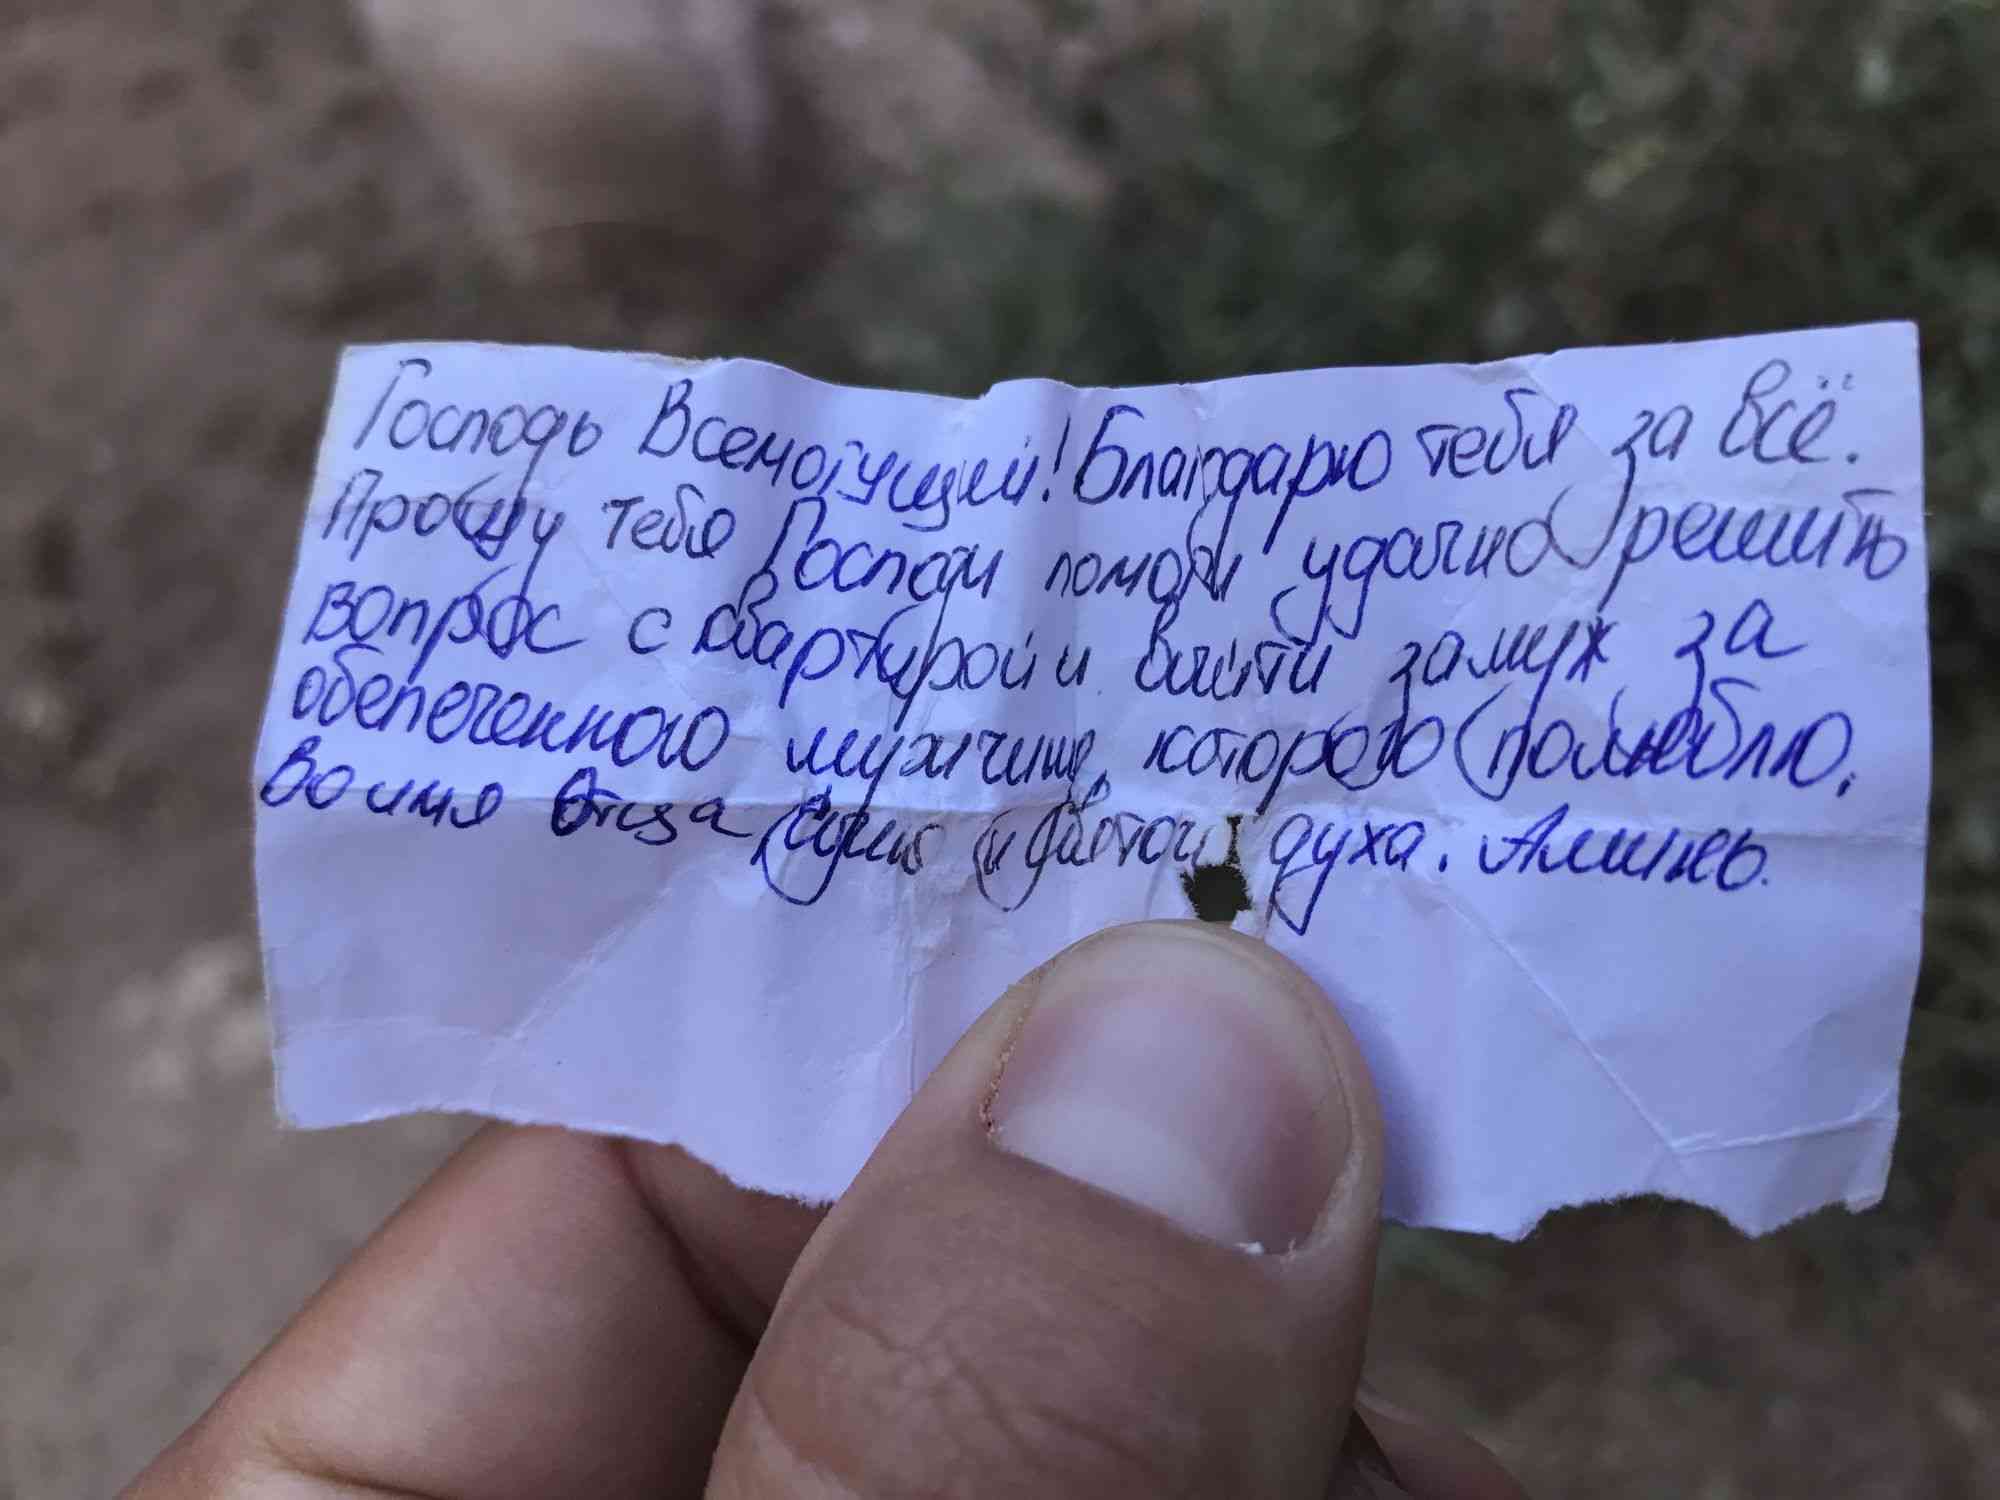 Господь Всемогущий! Благодарю тебя за всё.
Прошу тебя Господи помоги удачно решить
вопрос с квартирой и выйти замуж за
обепеченного мужчину, которого полюблю.
Во имя Отца, Сына и Святого духа. Аминь.